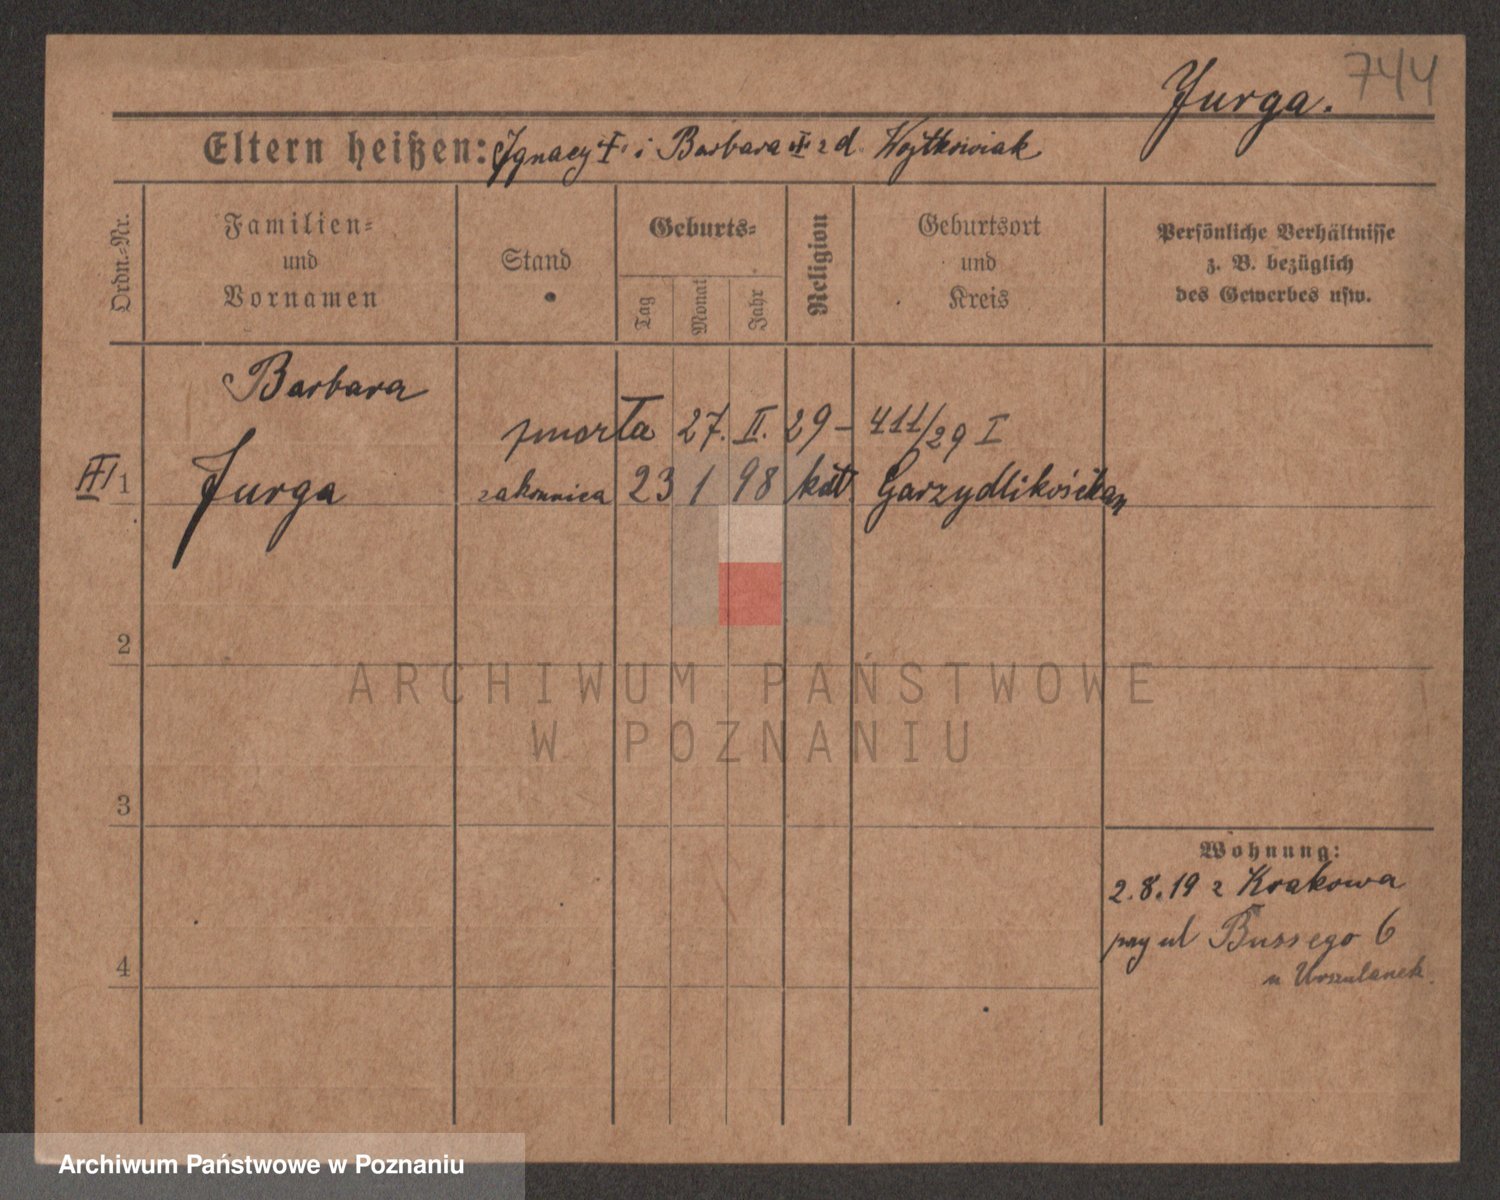 744
Jurga.
Eltern heißen: Ignacy i Barbara z d. Wojtkowiak
Ordn.-Nr.
Familien- und Vornamen
Stand
Geburts-
Tag
Monat
Jahr
Religion
Geburtsort und Kreis
Persönliche Verhältnisse z. B. bezüglich des Gewerbes usw.
Barbara
zmarła 27. II. 29 - 411/29 I
1 Jurga zakonnica 23 1 98 kat Garzydlikościan
2
3
4
Wohnung:
2.8.19 z Krakowa
przy ul Bussego 6
u Urszulanek.
ARCHIWUM PAŃSTWOWE
W POZNANIU
Archiwum Państwowe w Poznaniu